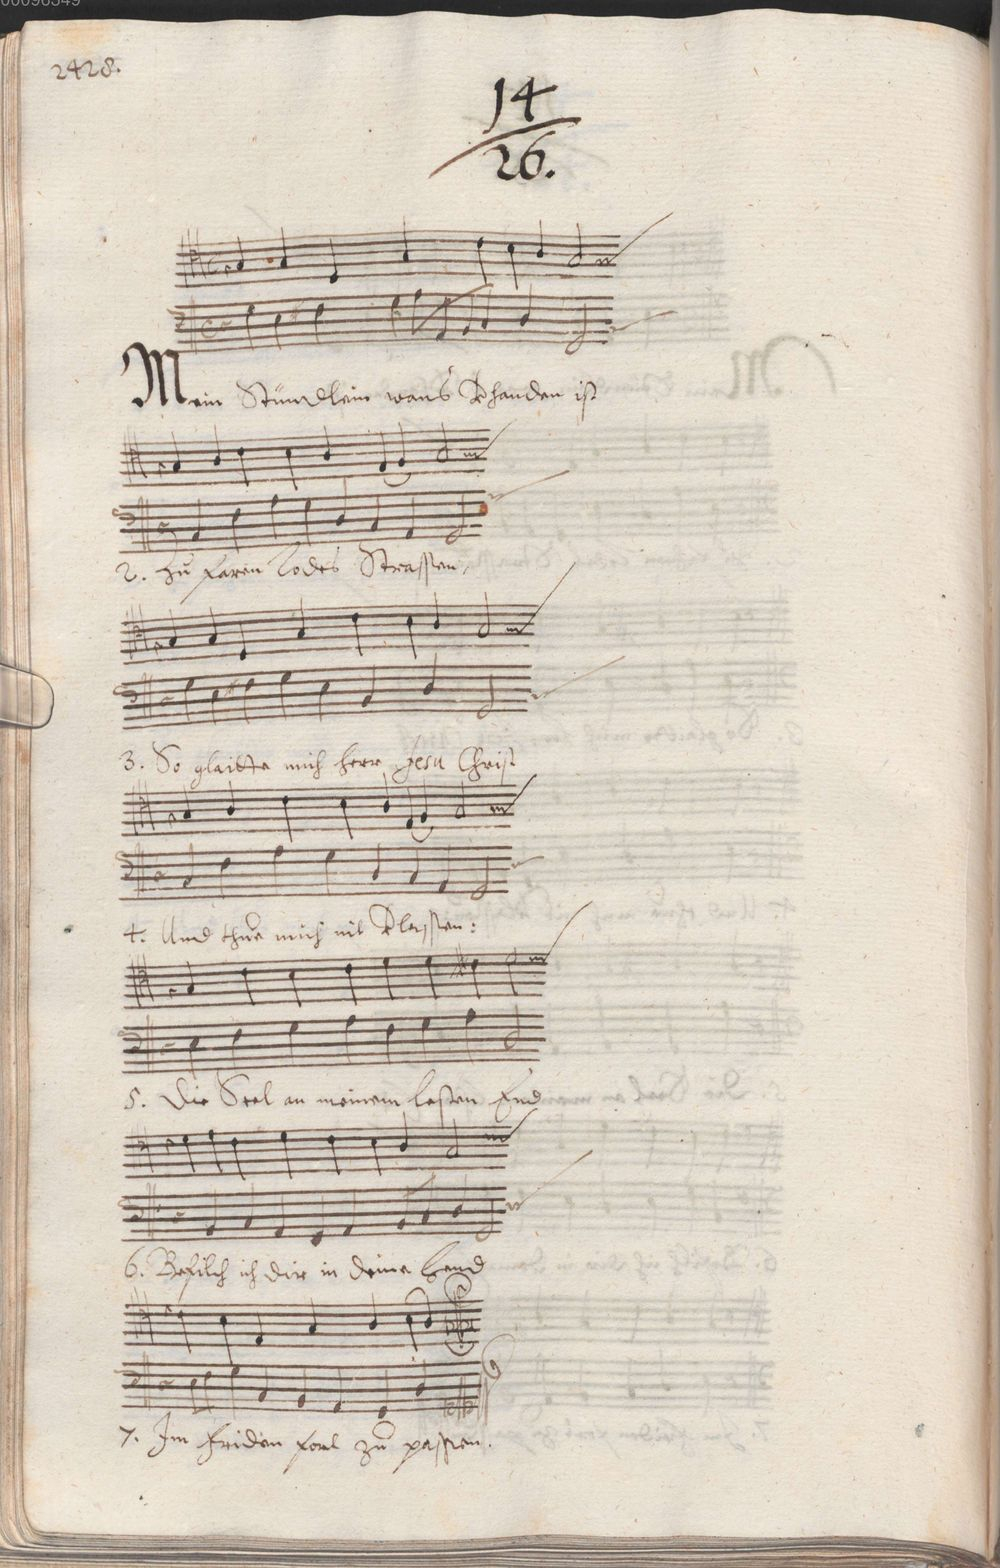 00096349
2428.
14
26.
Mein Stündlein wans Vhanden ist
2. Zů faren Todes Strassen,
3. So glaitte mich herr Jesu Christ
4. Und thue mich nit Vlassen:
5. Die Seel an meinem lesten End
6. Befilch ich dir in deine hend
7. Im Friden zů passen.